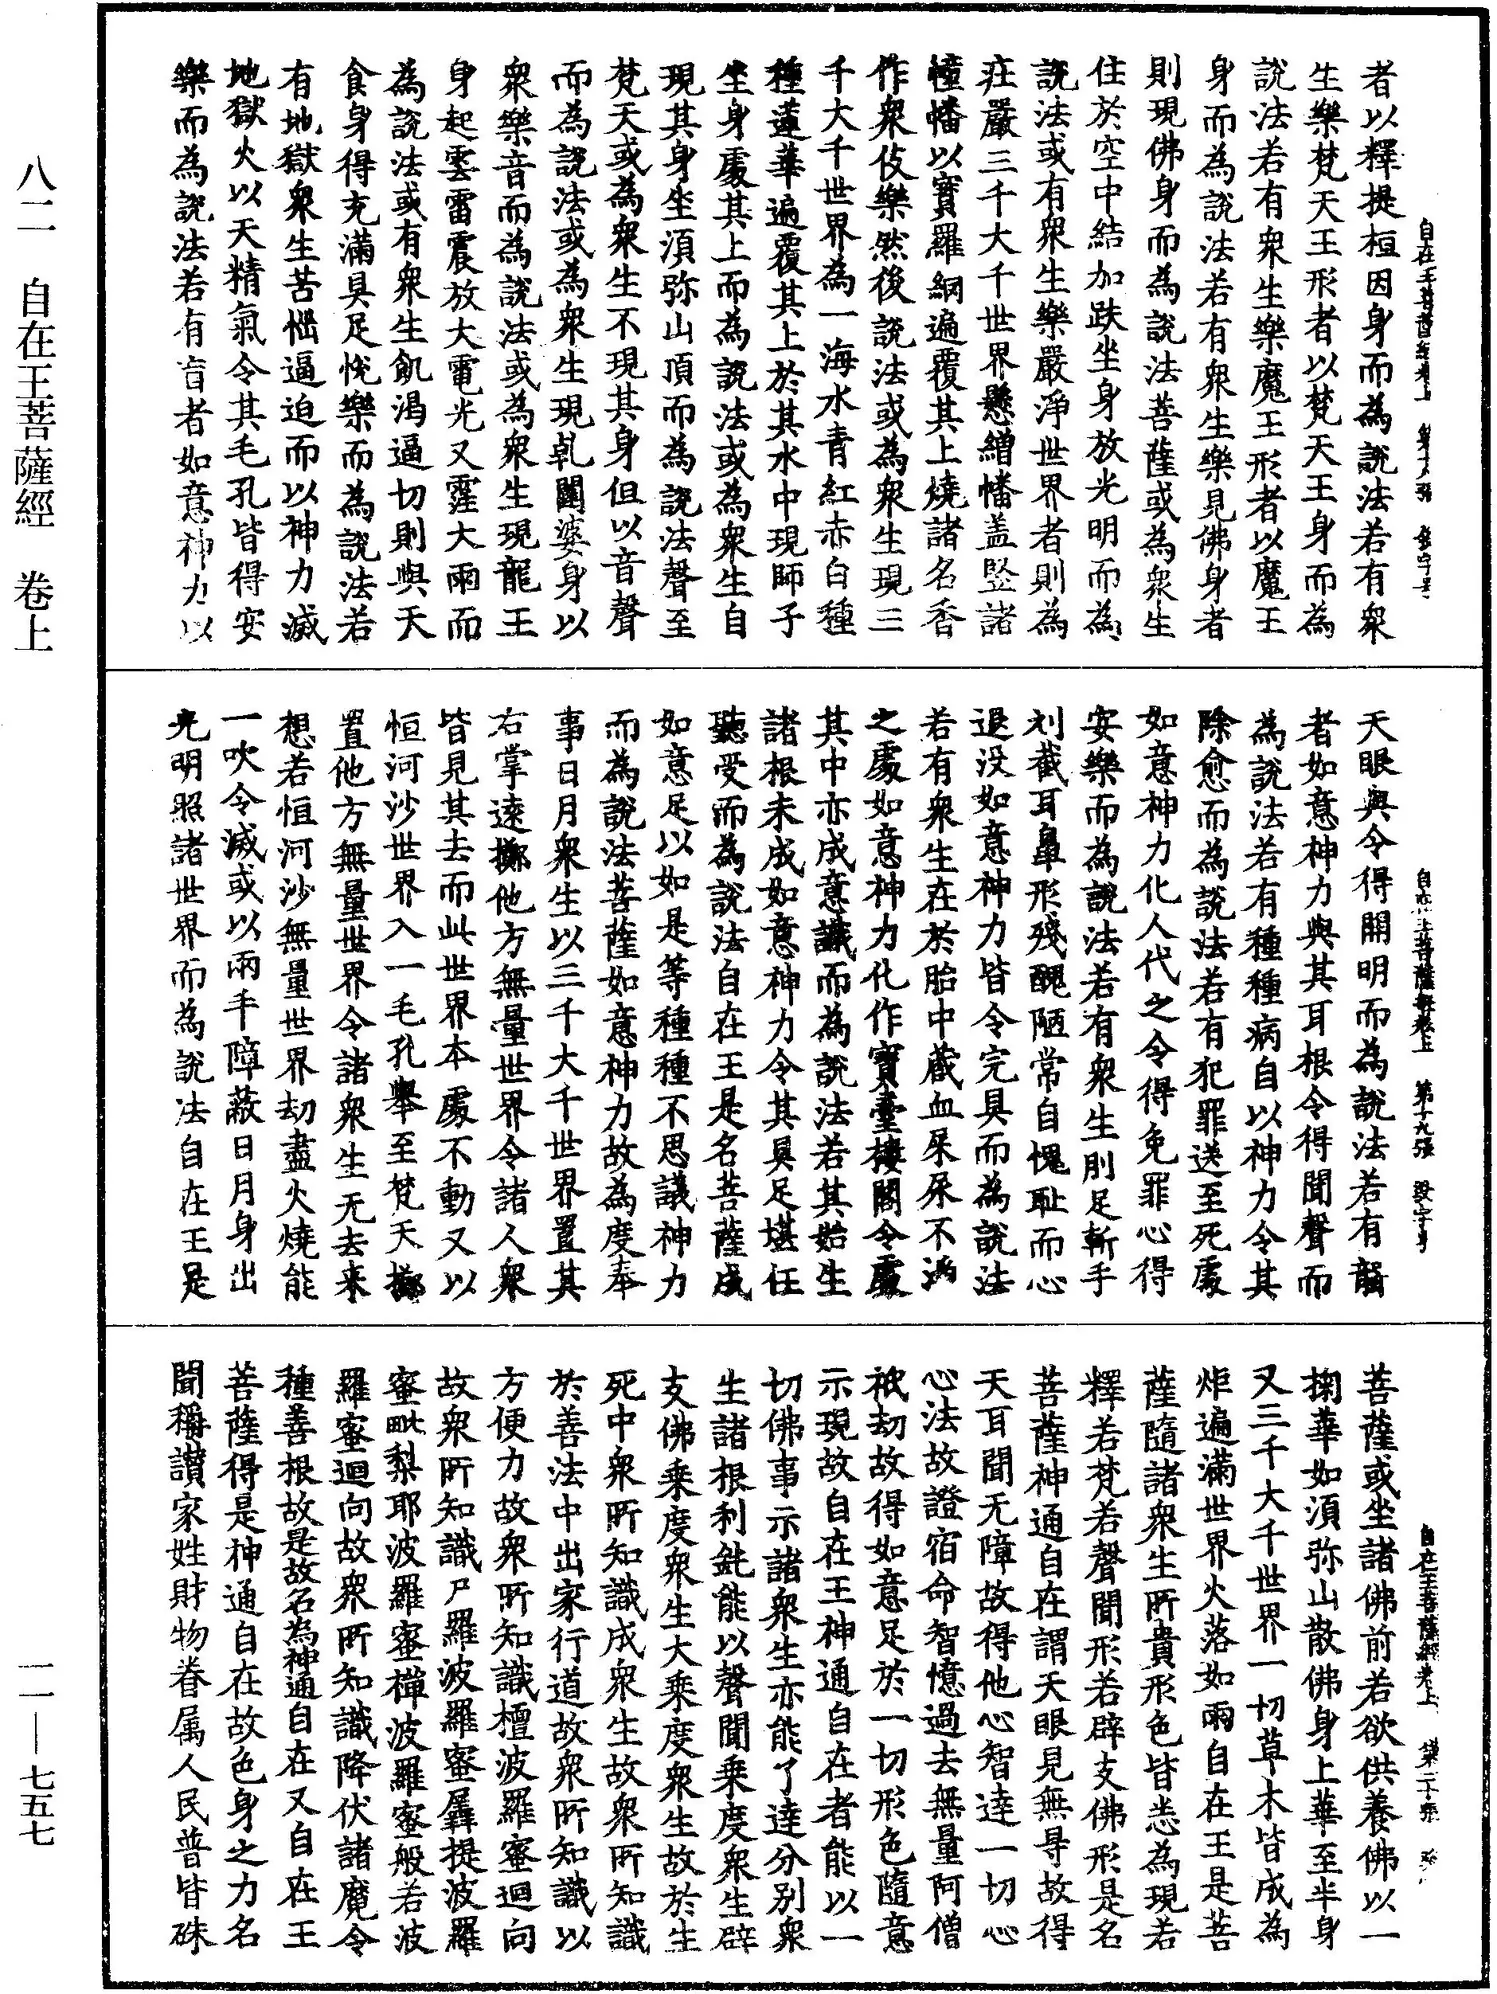 八二　自在王菩薩經　卷上
一一—七五七
者以釋提桓因身而為說法若有衆
生樂梵天王形者以梵天王身而為
說法若有衆生樂魔王形者以魔王
身而為說法若有衆生樂見佛身者
則現佛身而為說法菩薩或為衆生
住於空中結加趺坐身放光明而為
說法或有衆生樂嚴淨世界者則為
莊嚴三千大千世界懸繒幡盖竪諸
幢幡以寶羅網遍覆其上燒諸名香
作衆伎樂然後說法或為衆生現三
千大千世界為一海水青紅赤白種
種蓮華遍覆其上於其水中現師子
坐身處其上而為說法或為衆生自
現其身坐須弥山頂而為說法聲至
梵天或為衆生不現其身但以音聲
而為說法或為衆生現乹闥婆身以
衆樂音而為說法或為衆生現龍王
身起雲雷震放大電光又霔大雨而
為說法或有衆生飢渴逼切則與天
食身得充滿具足悅樂而為說法若
有地獄衆生苦惱逼迫而以神力滅
地獄火以天精氣令其毛孔皆得安
樂而為說法若有盲者如意神力以
自在王菩薩經卷上　第十八張
天眼與令得開明而為說法若有聾
者如意神力與其耳根令得聞聲而
為說法若有種種病自以神力令其
除愈而為說法若有犯罪送至死處
如意神力化人代之令得免罪心得
安樂而為說法若有衆生刖足斬手
刵截耳鼻形殘醜陋常自愧耻而心
退没如意神力皆令完具而為說法
若有衆生在於胎中藏血屎尿不淨
之處如意神力化作寶臺樓閣令處
其中亦成意識而為說法若其始生
諸根未成如意神力令其具足堪任
聽受而為說法自在王是名菩薩成
如意足以如是等種種不思議神力
而為說法菩薩如意神力故為度奉
事日月衆生以三千大千世界置其
右掌遠擲他方無量世界令諸人衆
皆見其去而此世界本處不動又以
恒河沙世界入一毛孔舉至梵天擲
置他方無量世界令諸衆生无去来
想若恒河沙無量世界劫盡火燒能
一吹令滅或以兩手障蔽日月身出
光明照諸世界而為說法自在王是
自在王菩薩經卷上　第十九張
菩薩或坐諸佛前若欲供養佛以一
掬華如須弥山散佛身上華至半身
又三千大千世界一切草木皆成為
炬遍滿世界火落如雨自在王是菩
薩隨諸衆生所貴形色皆悉為現若
釋若梵若聲聞形若辟支佛形是名
菩薩神通自在謂天眼見無㝵故得
天耳聞无障故得他心智達一切心
心法故證宿命智憶過去無量阿僧
祇劫故得如意足於一切形色隨意
示現故自在王神通自在者能以一
切佛事示諸衆生亦能了達分別衆
生諸根利鈍能以聲聞乗度衆生辟
支佛乗度衆生大乗度衆生故於生
死中衆所知識成衆生故衆所知識
於善法中出家行道故衆所知識以
方便力故衆所知識檀波羅蜜迴向
故衆所知識尸羅波羅蜜羼提波羅
蜜毗梨耶波羅蜜禪波羅蜜般若波
羅蜜迴向故衆所知識降伏諸魔令
種善根故是故名為神通自在又自在王
菩薩得是神通自在故色身之力名
聞稱讃家姓財物眷属人民普皆殊
自在王菩薩經卷上　第二十張